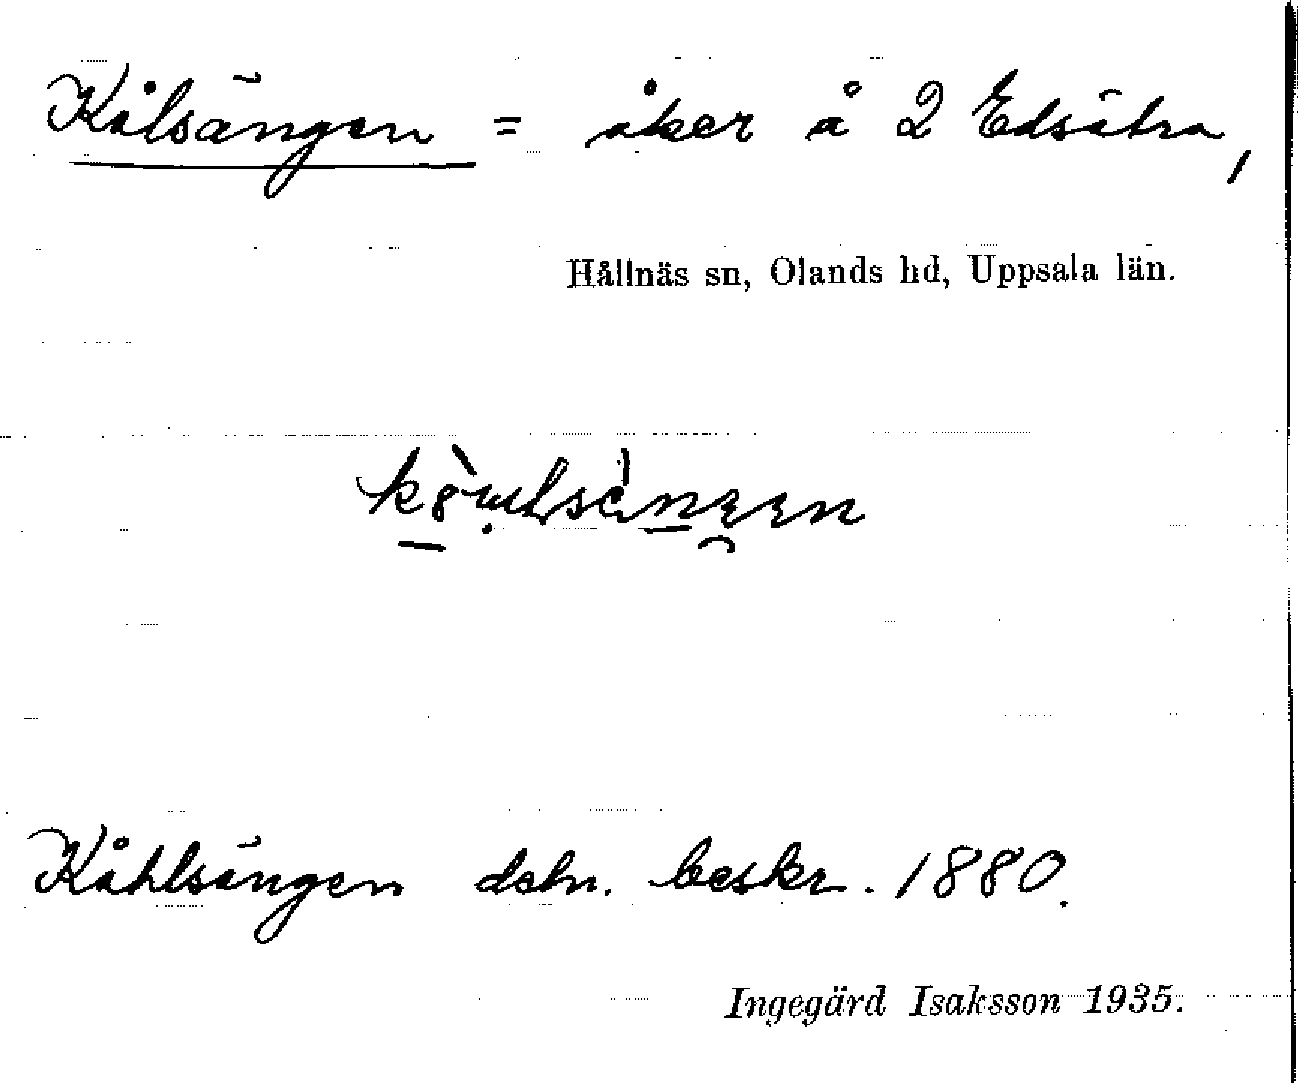 Kålsängen = åker å 2 Edsätra,
Hållnäs sn, Olands hd, Uppsala län.
Kåhlsängen dehn. beskr. 1880.
Ingegärd Isaksson 1935.